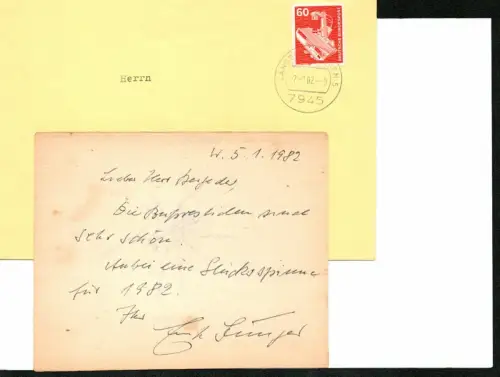 60
DEUTSCHE BUNDESPOST
Herrn
7945
W. 5.1.1982
Lieber Herr
Die Buprestiden sind
sehr schön.
Anbei eine Glücksspinne
für 1982.
Ihr
Ernst Jünger